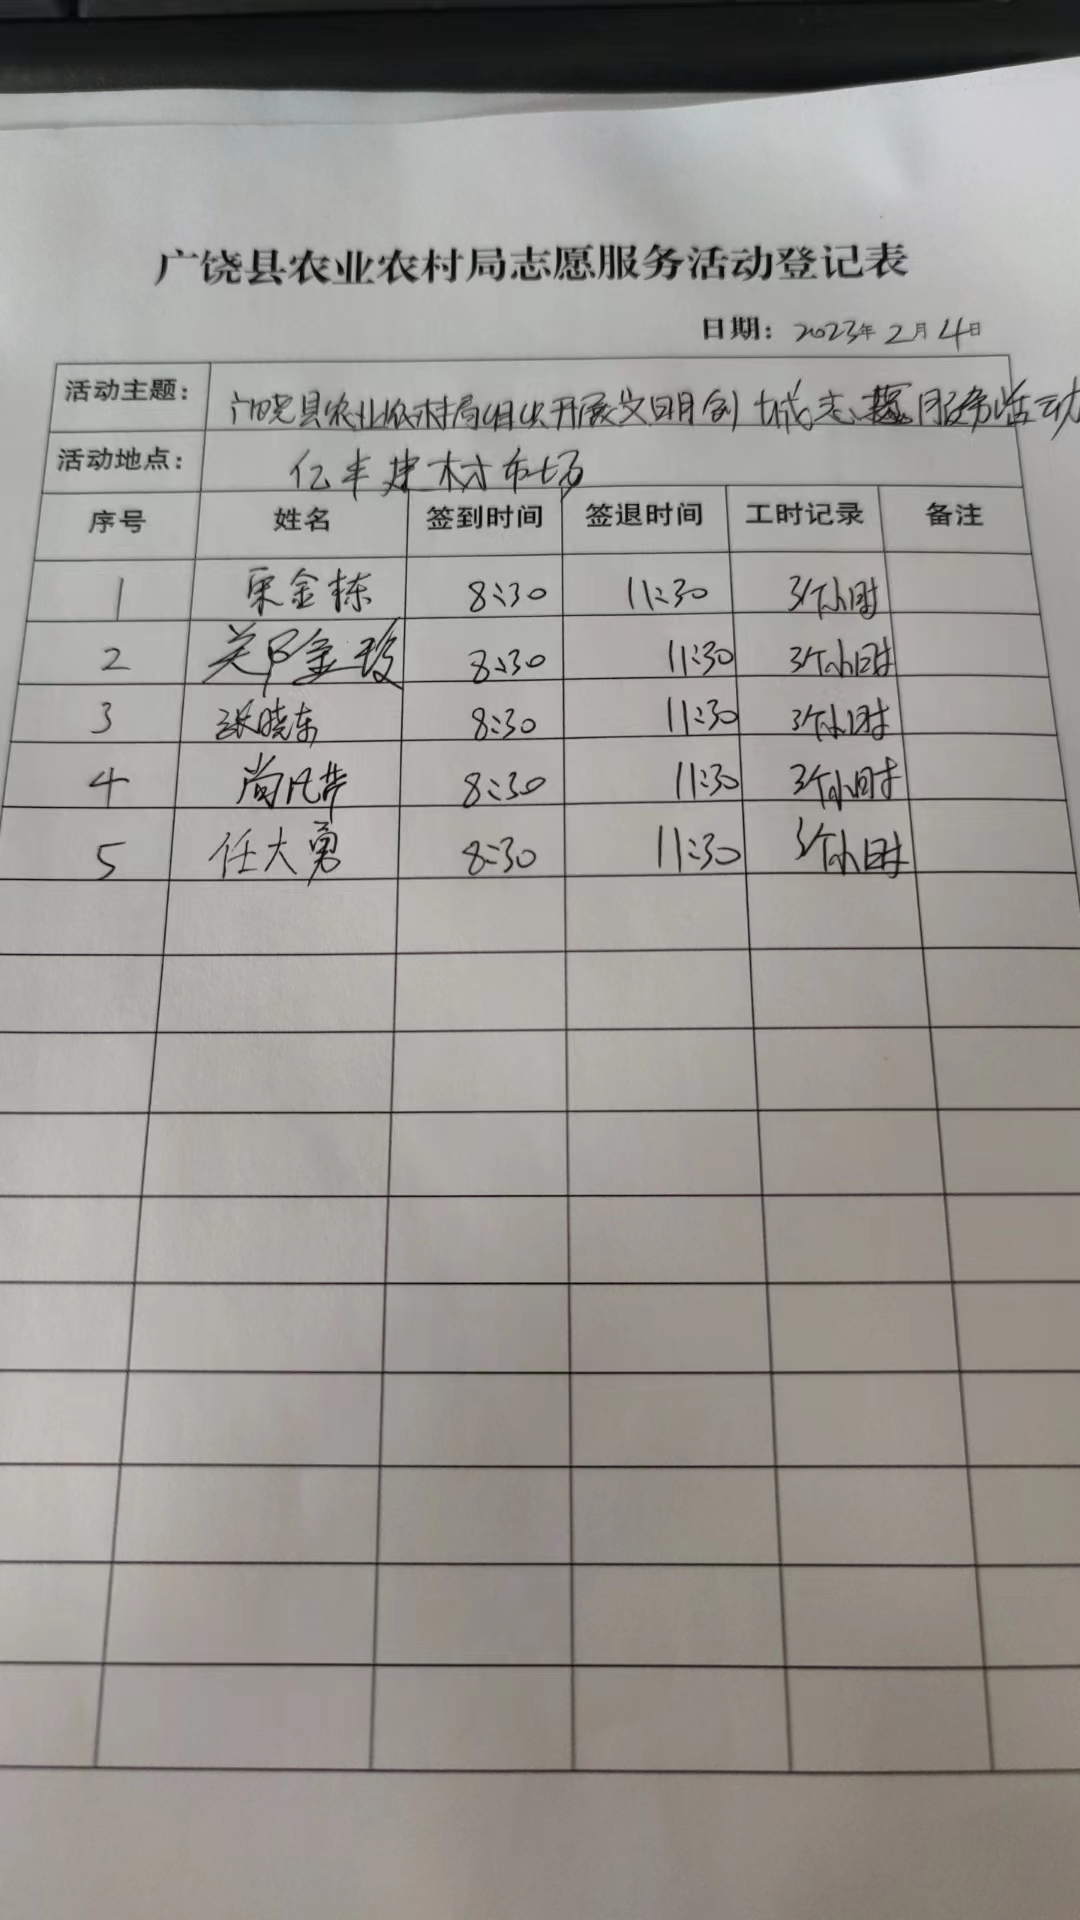 广饶县农业农村局志愿服务活动登记表
日期：2023年2月4日
活动主题：广饶县农业农村局组织开展文明创城志愿服务活动
活动地点：亿丰建材市场
序号 姓名 签到时间 签退时间 工时记录 备注
1 宋金栋 8:30 11:30 3个小时
2 郑金玻 8:30 11:30 3个小时
3 张晓东 8:30 11:30 3个小时
4 尚 8:30 11:30 3个小时
5 任大勇 8:30 11:30 3个小时